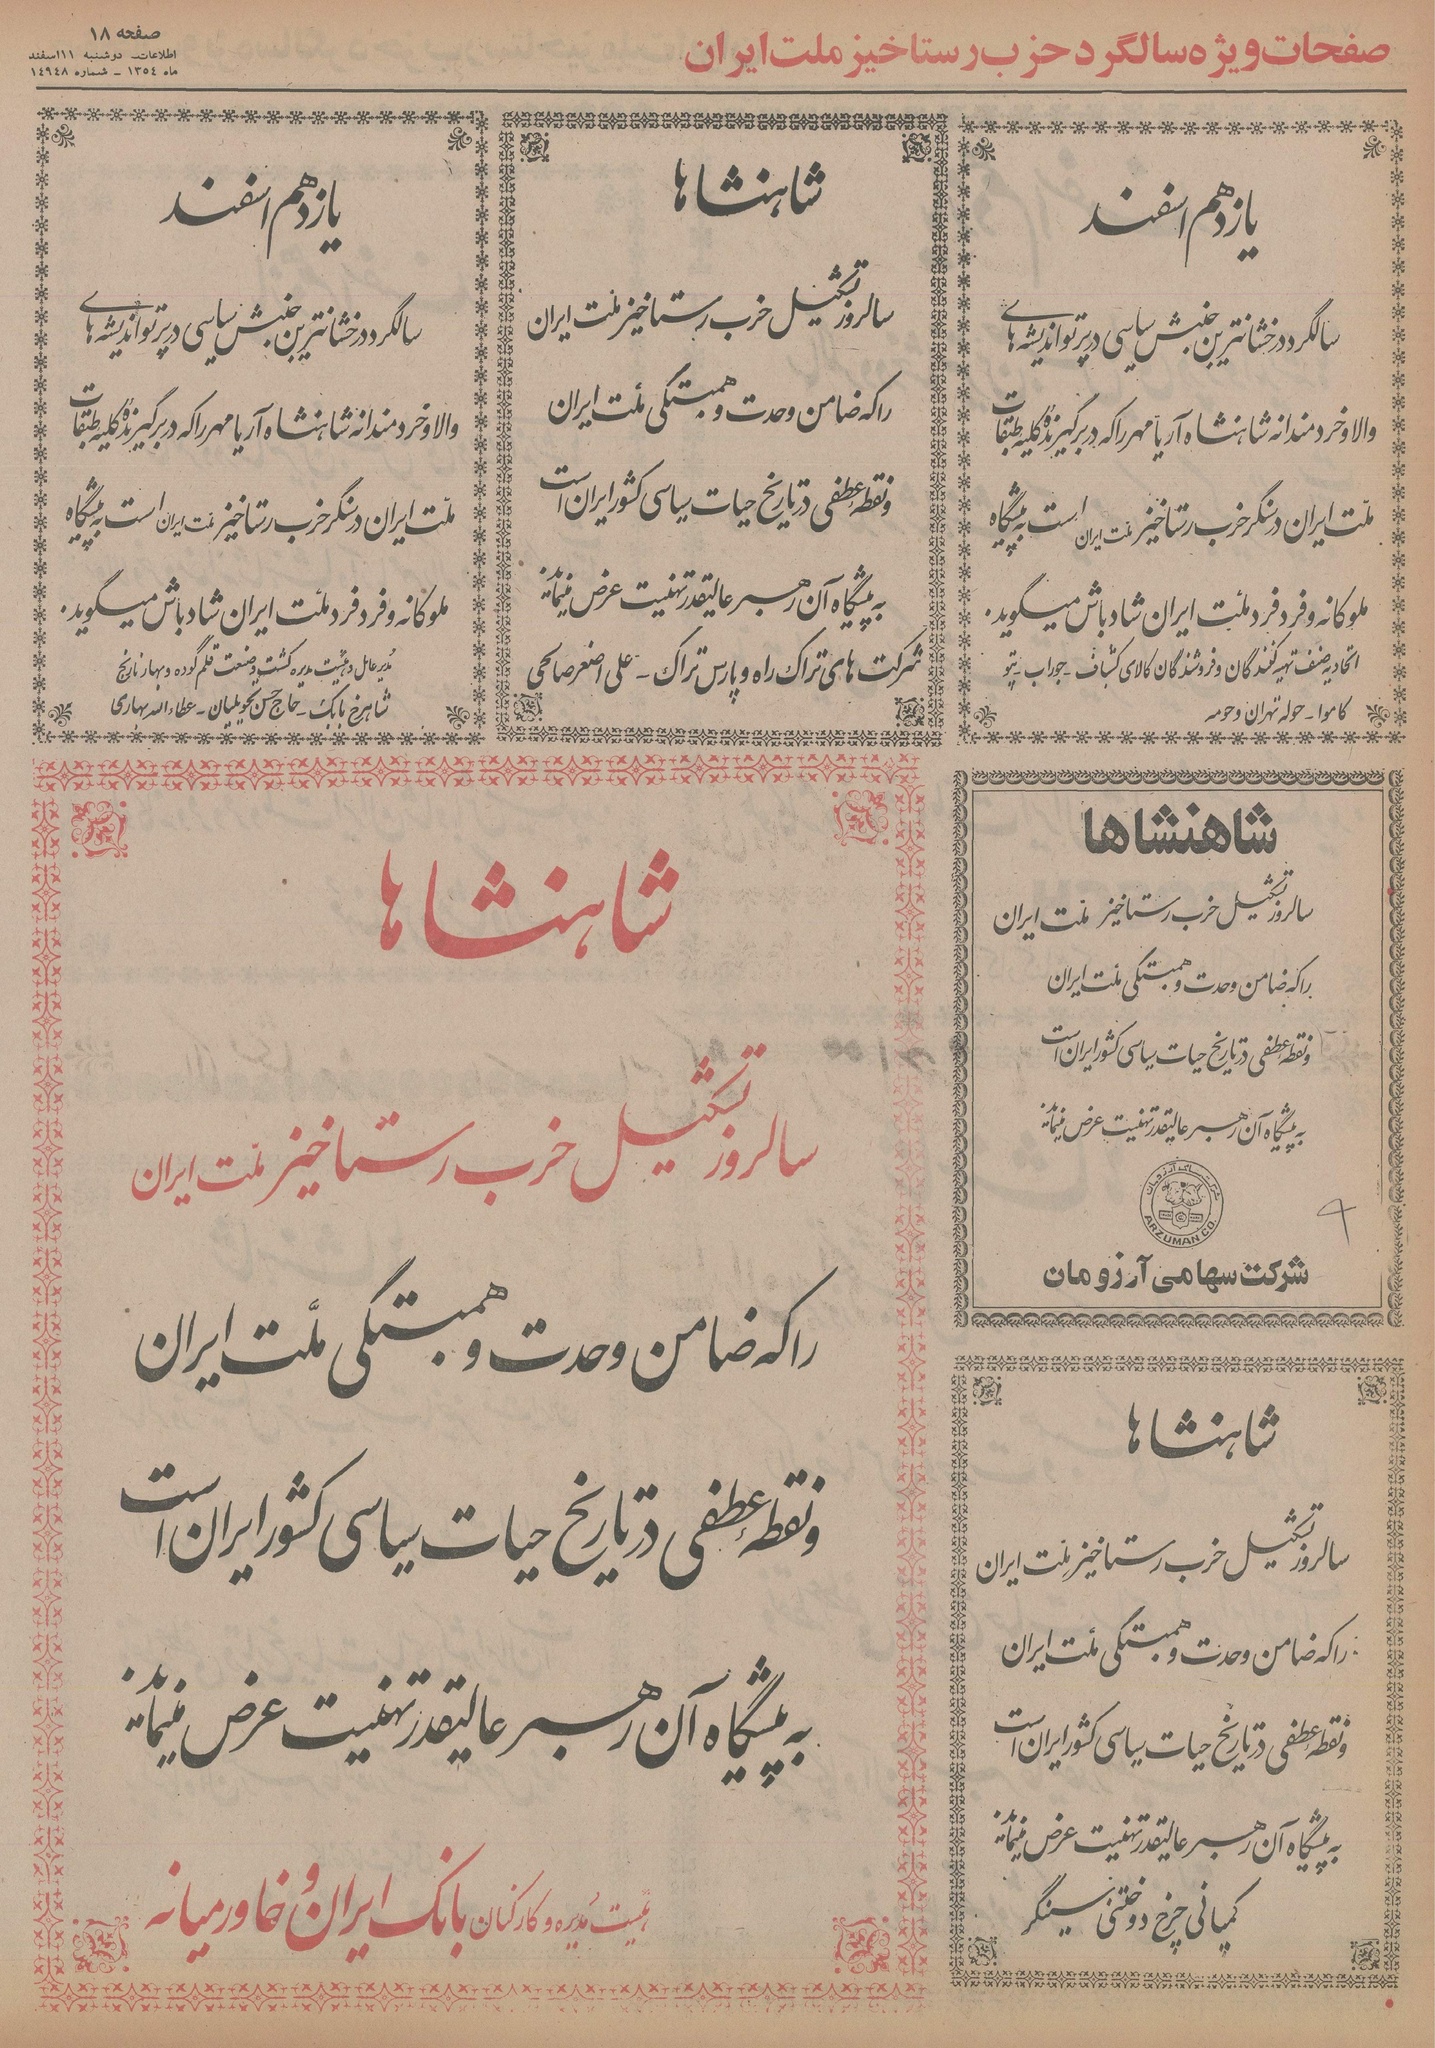 صفحات ویژه سالگرد حزب رستاخیز ملت ایران
صفحه ۱۸
اطلاعات دوشنبه ۱۱ اسفند
ماه ۱۳۵۴ - شماره ۱۴۹۴۸
یازدهم اسفند
سالگرد درخشانترین جنبش سیاسی در پرتو اندیشه های
والا و خردمندانه شاهنشاه آریامهر را که در برگیرنده کلیه طبقات
ملت ایران در سنگر حزب رستاخیز ملت ایران است به پیشگاه
ملوکانه و فرد فرد ملت ایران شادباش میگوید.
اتحادیه صنف تهیه کنندگان و فروشندگان کالای کشباف - جوراب - پتو
کاموا - حوله تهران و حومه
شاهنشاها
سالروز تشکیل حزب رستاخیز ملت ایران
را که ضامن وحدت و همبستگی ملت ایران
و نقطه عطفی در تاریخ حیات سیاسی کشور ایران است
به پیشگاه آن رهبر عالیقدر تهنیت عرض مینماید.
شرکت های تراک راه و پارس تراک - علی اصغر صالحی
یازدهم اسفند
سالگرد درخشانترین جنبش سیاسی در پرتو اندیشه های
والا و خردمندانه شاهنشاه آریامهر را که در برگیرنده کلیه طبقات
ملت ایران در سنگر حزب رستاخیز ملت ایران است به پیشگاه
ملوکانه و فرد فرد ملت ایران شادباش میگوید.
مدیر عامل و هیئت مدیره کشت و صنعت قلم گوده و بهار نارنج
شاهرخ بابک - حاج حسن تحویلیان - عطاءالله بهاری
شاهنشاها
سالروز تشکیل حزب رستاخیز ملت ایران
را که ضامن وحدت و همبستگی ملت ایران
و نقطه عطفی در تاریخ حیات سیاسی کشور ایران است
به پیشگاه آن رهبر عالیقدر تهنیت عرض مینماید.
ARZUMAN CO.
شرکت سهامی آرزومان
شاهنشاها
سالروز تشکیل حزب رستاخیز ملت ایران
را که ضامن وحدت و همبستگی ملت ایران
و نقطه عطفی در تاریخ حیات سیاسی کشور ایران است
به پیشگاه آن رهبر عالیقدر تهنیت عرض مینماید.
کمپانی چرخ دوختنی سینگر
شاهنشاها
سالروز تشکیل حزب رستاخیز ملت ایران
را که ضامن وحدت و همبستگی ملت ایران
و نقطه عطفی در تاریخ حیات سیاسی کشور ایران است
به پیشگاه آن رهبر عالیقدر تهنیت عرض مینماید.
هیئت مدیره و کارکنان بانک ایران و خاورمیانه